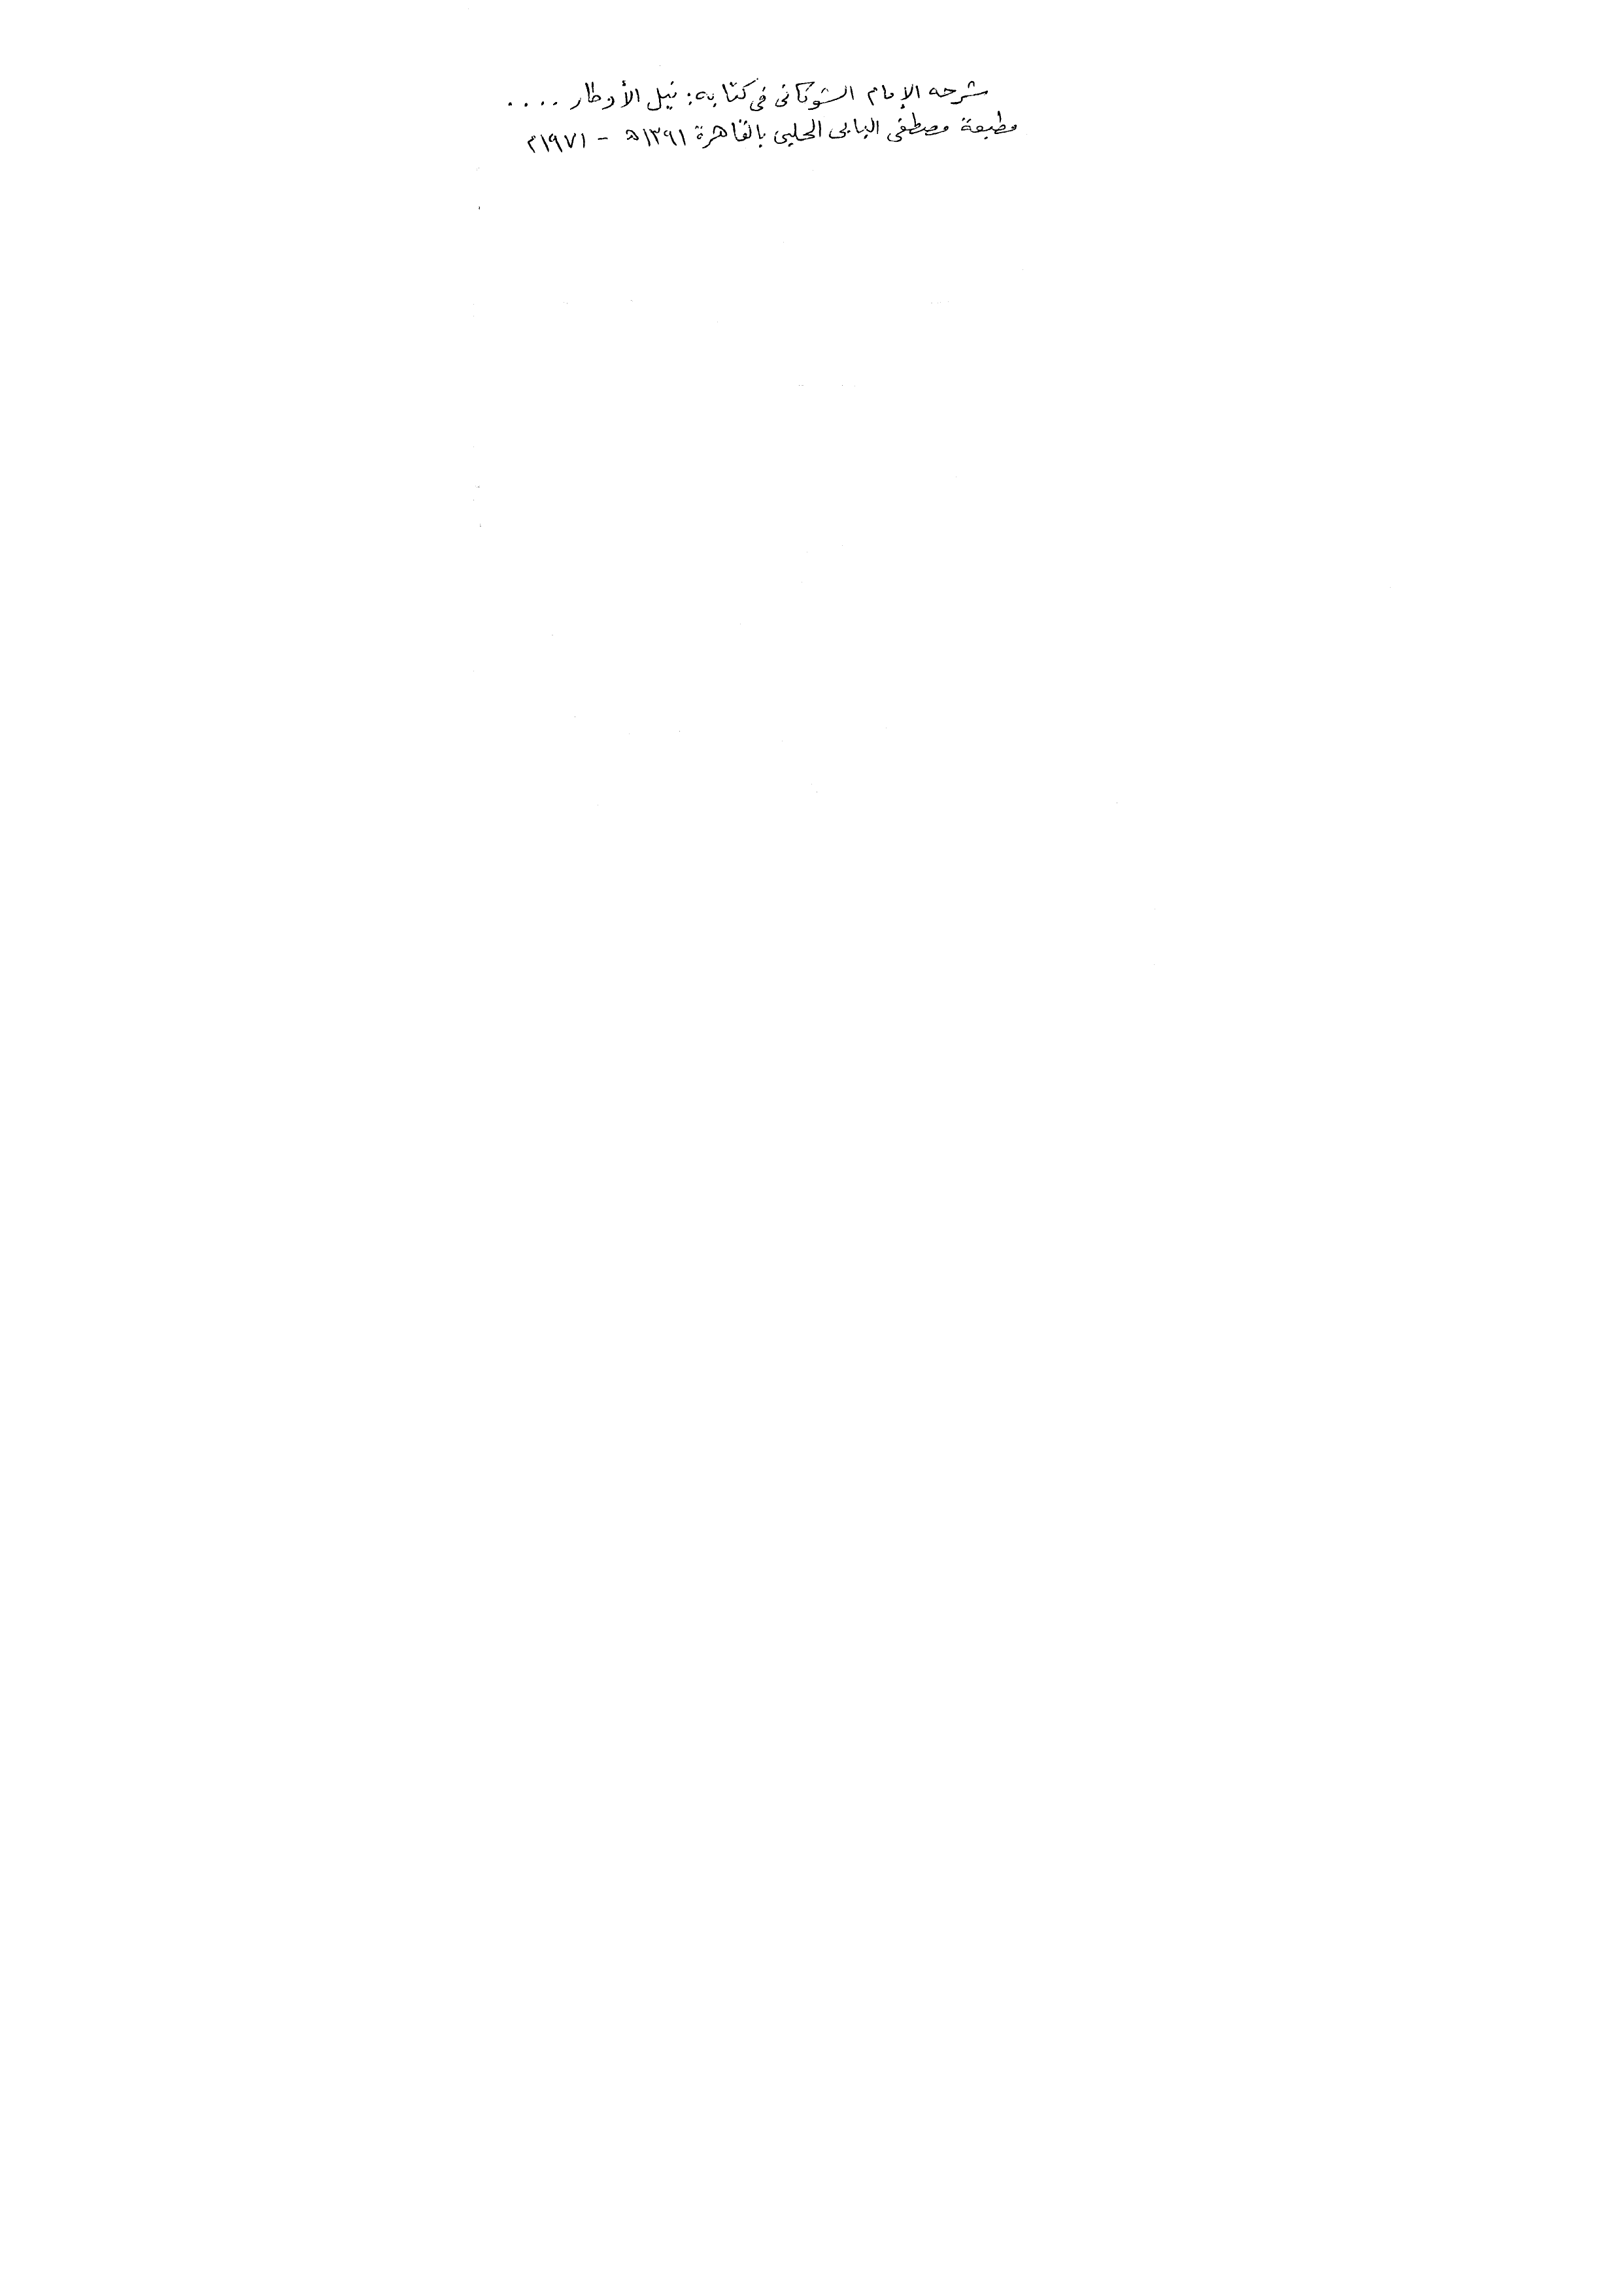 شرحه الإمام الشوكانى فى كتابه: نيل الأوطار ....
مطبعة مصطفى البابى الحلبى بالقاهرة ١٣٩١ﻫ - ١٩٧١م